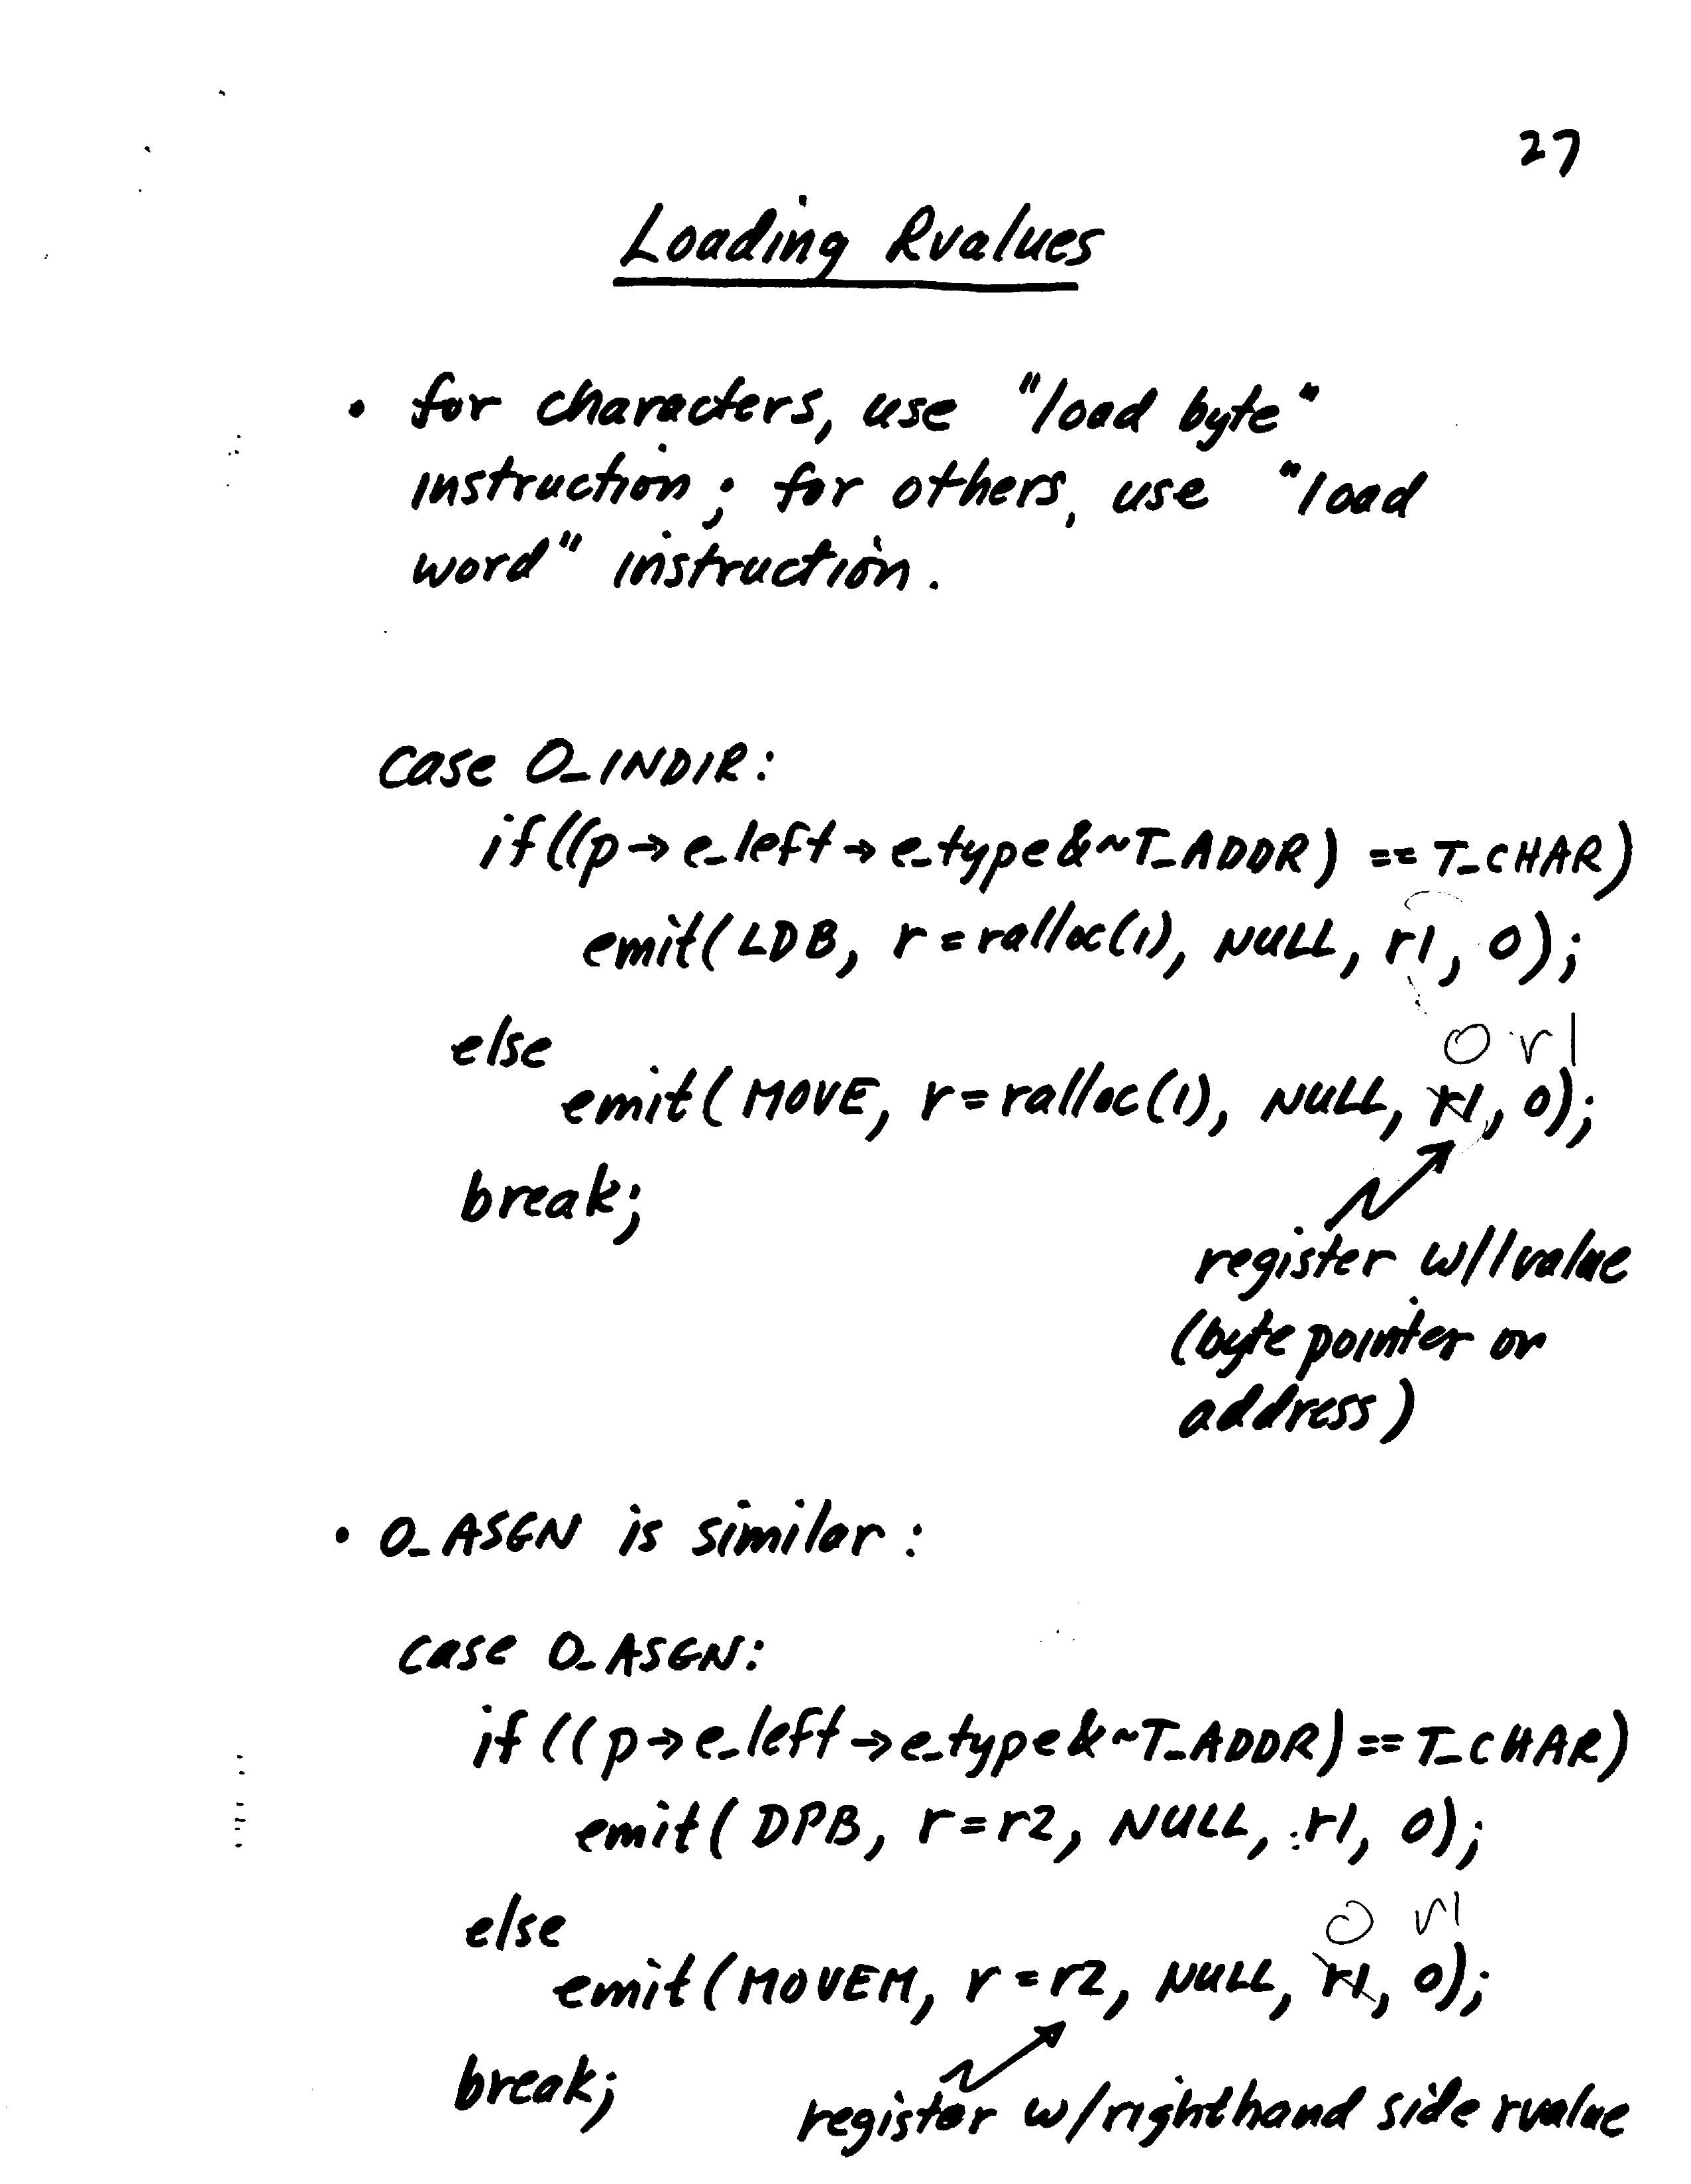 27
Loading Rvalues
• for characters, use "load byte"
instruction; for others, use "load
word" instruction.
case O_INDIR:
if((p→e_left→e_type&~T_ADDR) == T_CHAR)
emit(LDB, r=ralloc(1), NULL, r1, 0);
else
0 r1
emit(MOVE, r=ralloc(1), NULL, r1, 0);
break;
register w/lvalue
(byte pointer or
address)
• O_ASGN is similar:
case O_ASGN:
if((p→e_left→e_type&~T_ADDR)==T_CHAR)
emit(DPB, r=r2, NULL, r1, 0);
else
0 r1
emit(MOVEM, r=r2, NULL, r1, 0);
break;
register w/righthand side rvalue